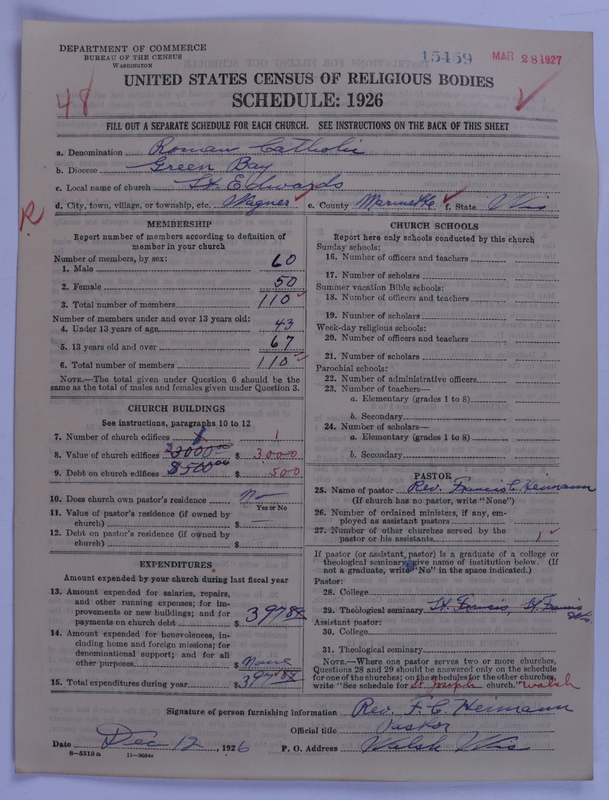 DEPARTMENT OF COMMERCE
BUREAU OF THE CENSUS
WASHINGTON
15459
MAR 28 1927
UNITED STATES CENSUS OF RELIGIOUS BODIES
SCHEDULE: 1926
48
FILL OUT A SEPARATE SCHEDULE FOR EACH CHURCH. SEE INSTRUCTIONS ON THE BACK OF THIS SHEET
a. Denomination Roman Catholic
b. Diocese Green Bay
c. Local name of church St. Edwards
d. City, town, village, or township, etc. Wagner e. County Marinette f. State Wis
R
MEMBERSHIP
Report number of members according to definition of
member in your church
Number of members, by sex:
1. Male 60
2. Female 50
3. Total number of members 110
Number of members under and over 13 years old:
4. Under 13 years of age 43
5. 13 years old and over 67
6. Total number of members 110
NOTE.—The total given under Question 6 should be the
same as the total of males and females given under Question 3.
CHURCH BUILDINGS
See instructions, paragraphs 10 to 12
7. Number of church edifices 1
8. Value of church edifices $3000.00 $ 3000
9. Debt on church edifices $500.00 500
10. Does church own pastor's residence No
Yes or No
11. Value of pastor's residence (if owned by
church) $ —
12. Debt on pastor's residence (if owned by
church) $
EXPENDITURES
Amount expended by your church during last fiscal year
13. Amount expended for salaries, repairs,
and other running expenses; for im-
provements or new buildings; and for
payments on church debt $
14. Amount expended for benevolences, in-
cluding home and foreign missions; for
denominational support; and for all
other purposes $ None
15. Total expenditures during year $
CHURCH SCHOOLS
Report here only schools conducted by this church
Sunday schools:
16. Number of officers and teachers
17. Number of scholars
Summer vacation Bible schools:
18. Number of officers and teachers
19. Number of scholars
Week-day religious schools:
20. Number of officers and teachers
21. Number of scholars
Parochial schools:
22. Number of administrative officers
23. Number of teachers—
a. Elementary (grades 1 to 8)
b. Secondary
24. Number of scholars—
a. Elementary (grades 1 to 8)
b. Secondary
PASTOR
25. Name of pastor Rev. Francis C. Hermann
(If church has no pastor, write "None")
26. Number of ordained ministers, if any, em-
ployed as assistant pastors
27. Number of other churches served by the
pastor or his assistants 1
If pastor (or assistant pastor) is a graduate of a college or
theological seminary give name of institution below. (If
not a graduate, write "No" in the space indicated.)
Pastor:
28. College
29. Theological seminary St. Francis, St Francis
Wis.
Assistant pastor:
30. College
31. Theological seminary
NOTE.—Where one pastor serves two or more churches,
Questions 28 and 29 should be answered only on the schedule
for one of the churches; on the schedules for the other churches,
write "See schedule for St. Joseph church." Walsh
Signature of person furnishing information Rev. F. C. Hermann
Official title Pastor
Date Dec 12, 1926 P. O. Address Walsh Wis
8—5318a